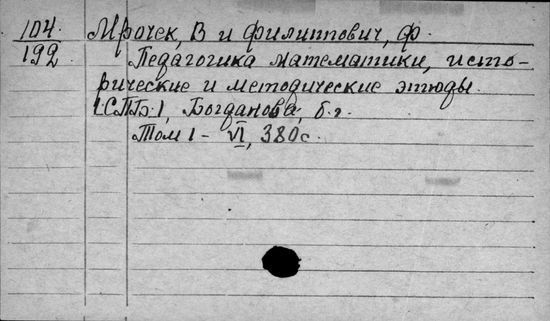 104. Мрочек, В и Филиппович, Ф.
192 Педагогика математики, исто-
рические и методические этюды.
[СПБ.], Богданова, б.г.
Том 1 - VI, 380с.